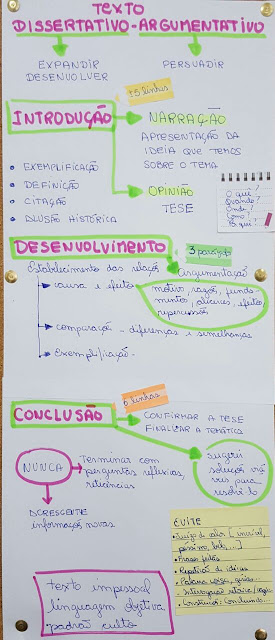 TEXTO
DISSERTATIVO-ARGUMENTATIVO
EXPANDIR
DESENVOLVER
PERSUADIR
±5 linhas
INTRODUÇÃO
NARRAÇÃO
APRESENTAÇÃO DA
IDEIA QUE TEMOS
SOBRE O TEMA
• EXEMPLIFICAÇÃO
• DEFINIÇÃO
• CITAÇÃO
• ALUSÃO HISTÓRICA
OPINIÃO
TESE
O quê?
Quando?
Onde?
Como?
Por quê?
DESENVOLVIMENTO
3 parágrafos
Estabelecimento das relações
argumentação
causa e efeito
motivo, razões, funda
mentos, alicerces, efeitos,
repercussões
comparação - diferenças e semelhanças
Exemplificação.
6 linhas
CONCLUSÃO
CONFIRMAR A TESE
FINALIZAR A TEMÁTICA
NUNCA
Terminar com
perguntas reflexivas,
reticências
sugerir
resolvê-lo
ACRESCENTE
informações novas
EVITE
• Juízo de valor [incrível,
péssimo, belo, ...]
• Frases feitas
• Repetição de ideias
• Interrogação retórica
texto impessoal
linguagem objetiva
padrão culto